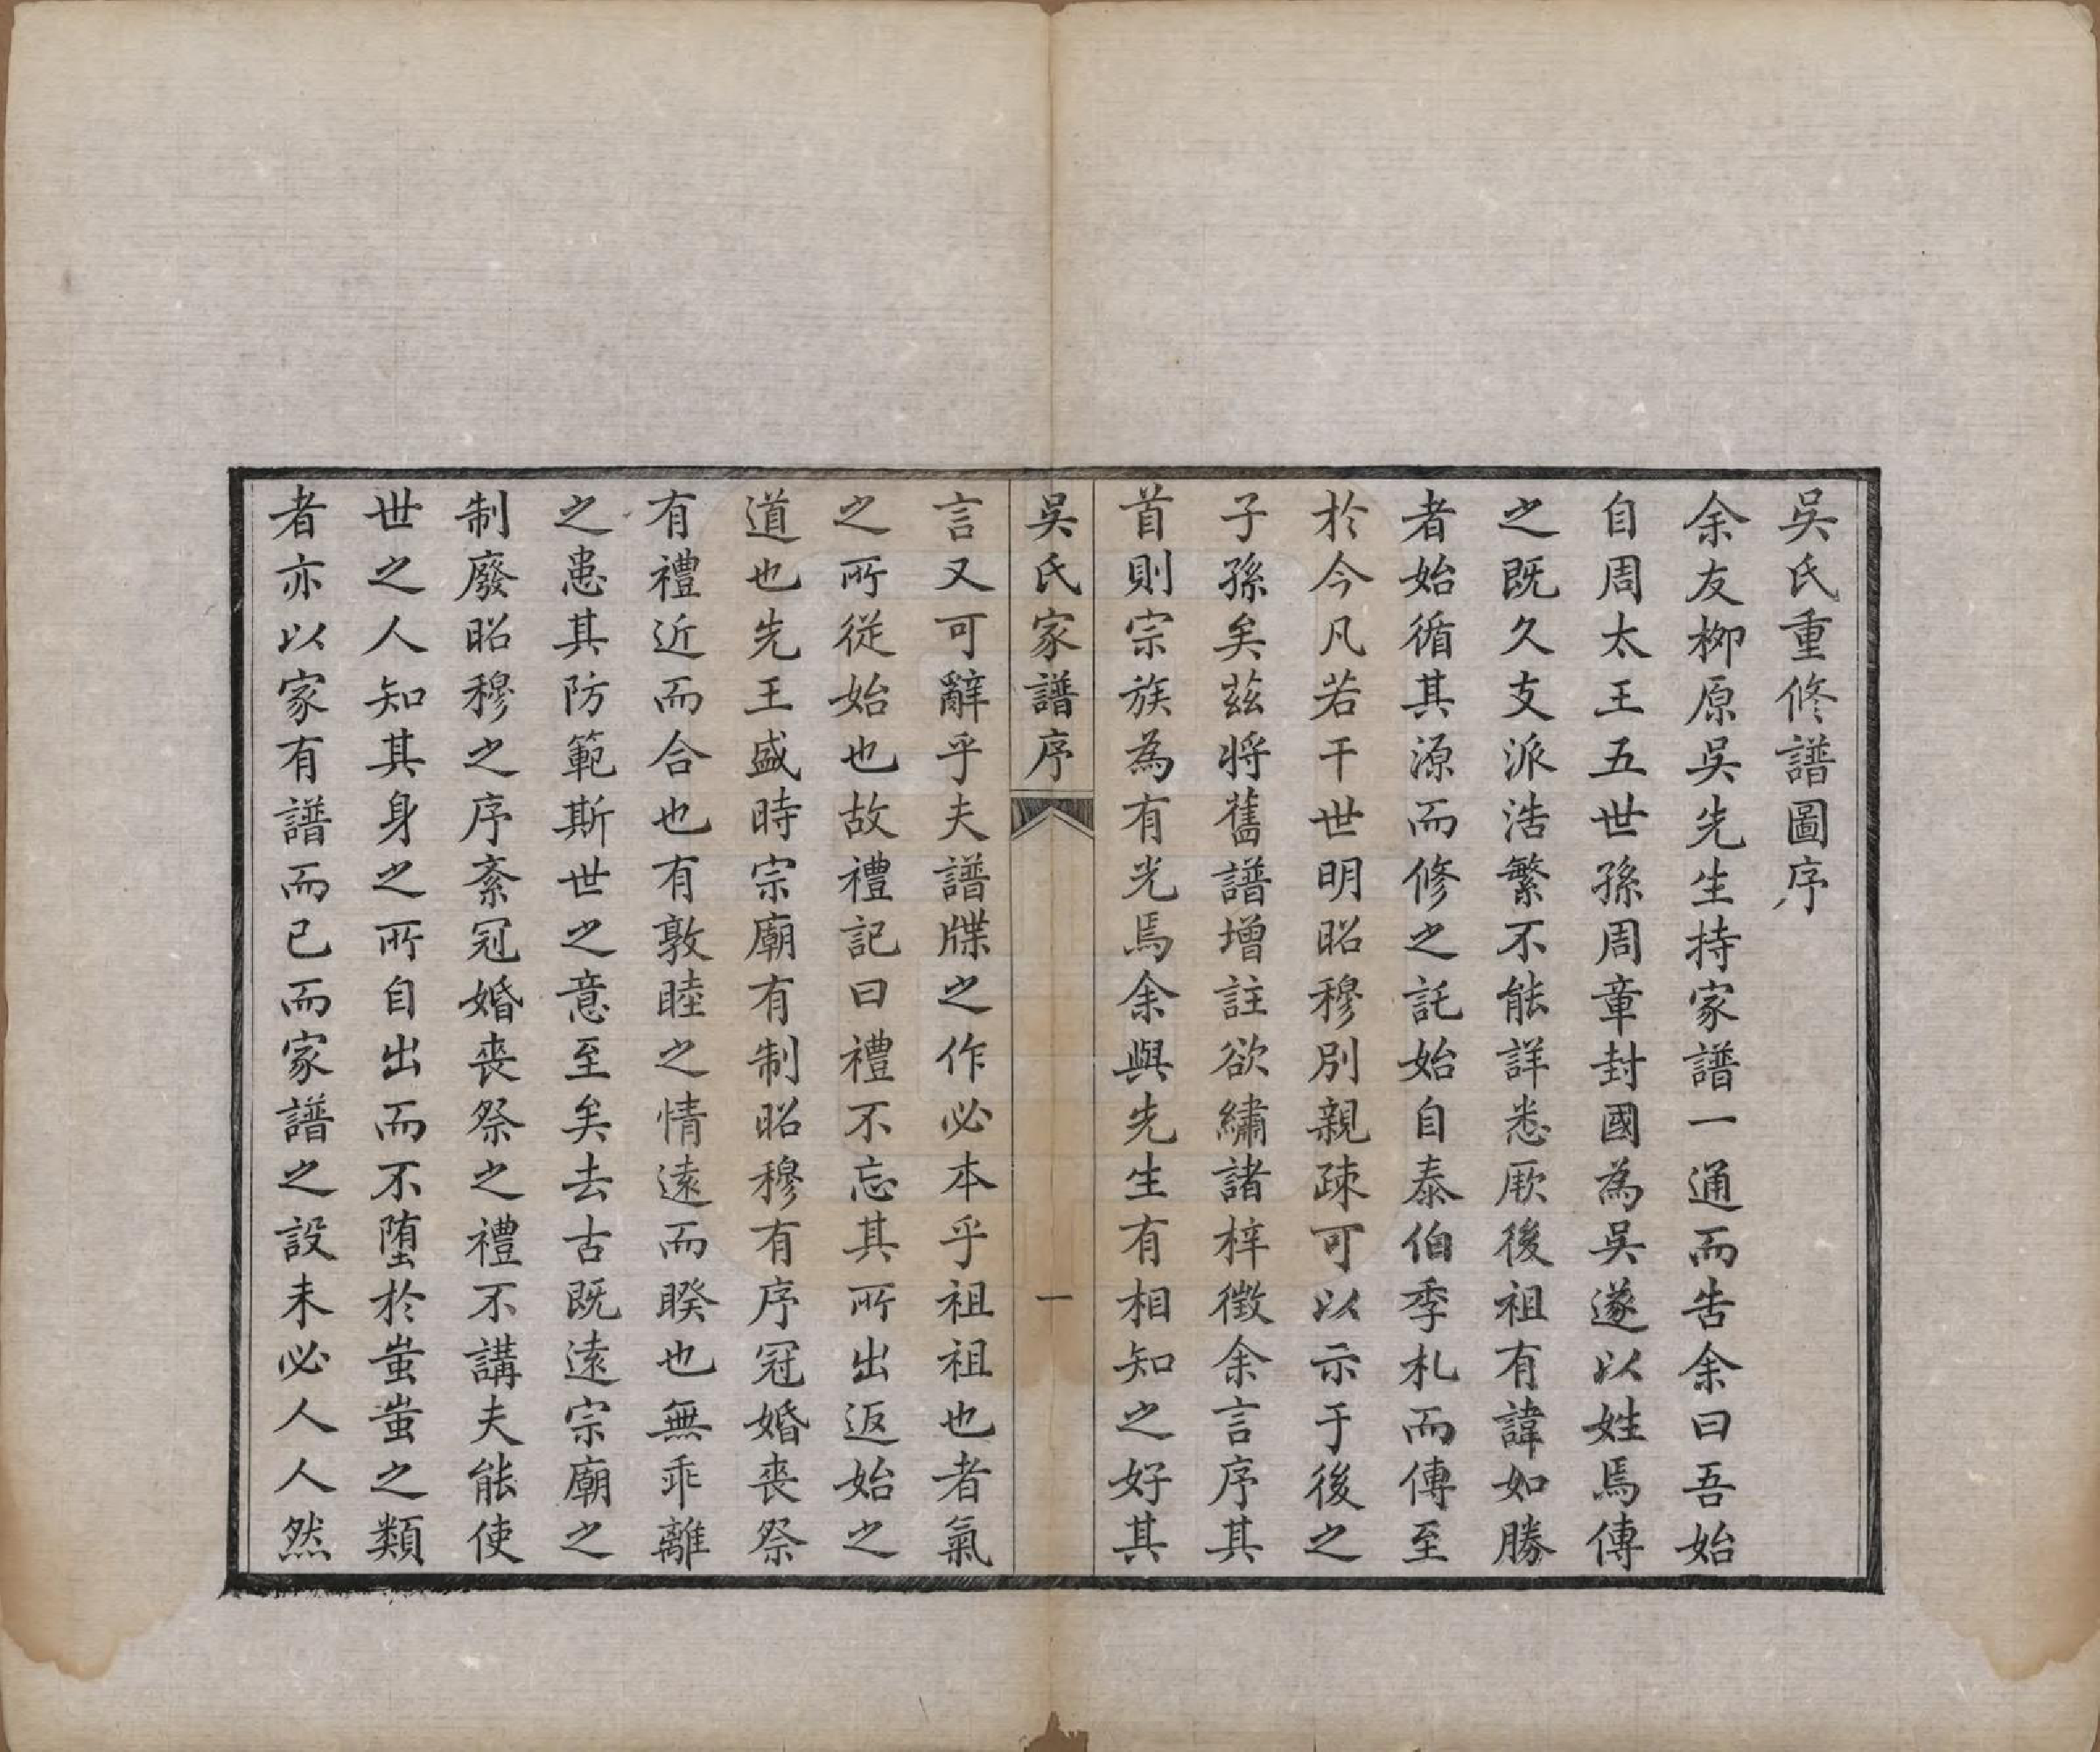 吳氏重修譜圖序
余友栁原吳先生持家譜一通而告余曰吾始
自周太王五世孫周章封國為吳遂以姓焉傳
之既久支派浩繁不能詳悉厥後祖有諱如勝
者始循其源而修之託始自泰伯季札而傳至
於今凡若干世明昭穆別親疎可以示于後之
子孫矣茲將舊譜增註欲繡諸梓徵余言序其
首則宗族為有光焉余與先生有相知之好其
吳氏家譜序 一
言又可辭乎夫譜牒之作必本乎祖祖也者氣
之所從始也故禮記曰禮不忘其所出返始之
道也先王盛時宗廟有制昭穆有序冠婚喪祭
有禮近而合也有敦睦之情遠而睽也無乖離
之患其防範斯世之意至矣去古既遠宗廟之
制廢昭穆之序紊冠婚喪祭之禮不講夫能使
世之人知其身之所自出而不墮於蚩蚩之類
者亦以家有譜而已而家譜之設未必人人然